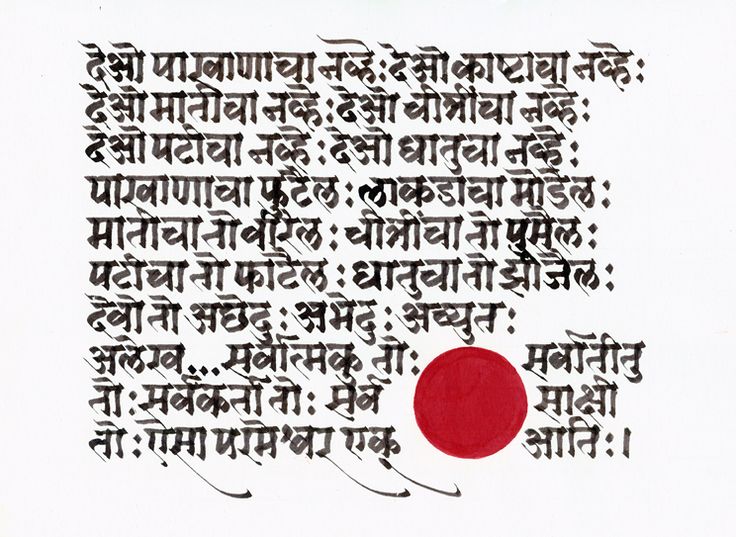 देओ पाखाणाचा नव्हे : देओ काष्टाचा नव्हे :
देओ मातीचा नव्हे : देओ चीत्रींचा नव्हे :
देओ पटीचा नव्हे : देओ धातुचा नव्हे :
पाखाणाचा फुटैल : लाकडाचा मोडैल :
मातीचा तो वीरैल : चीत्रींचा तो पुसैल :
पटीचा तो फाटैल : धातुचा तो झीजैल :
देवो तो अछेदु : अभेदु : अच्युत :
अलेख... सर्वात्मक तो : सर्वातीतु
तो : सर्वकर्ता तो : सर्व साक्षी
तो : ऐसा परमेश्वर एकु आति : ।